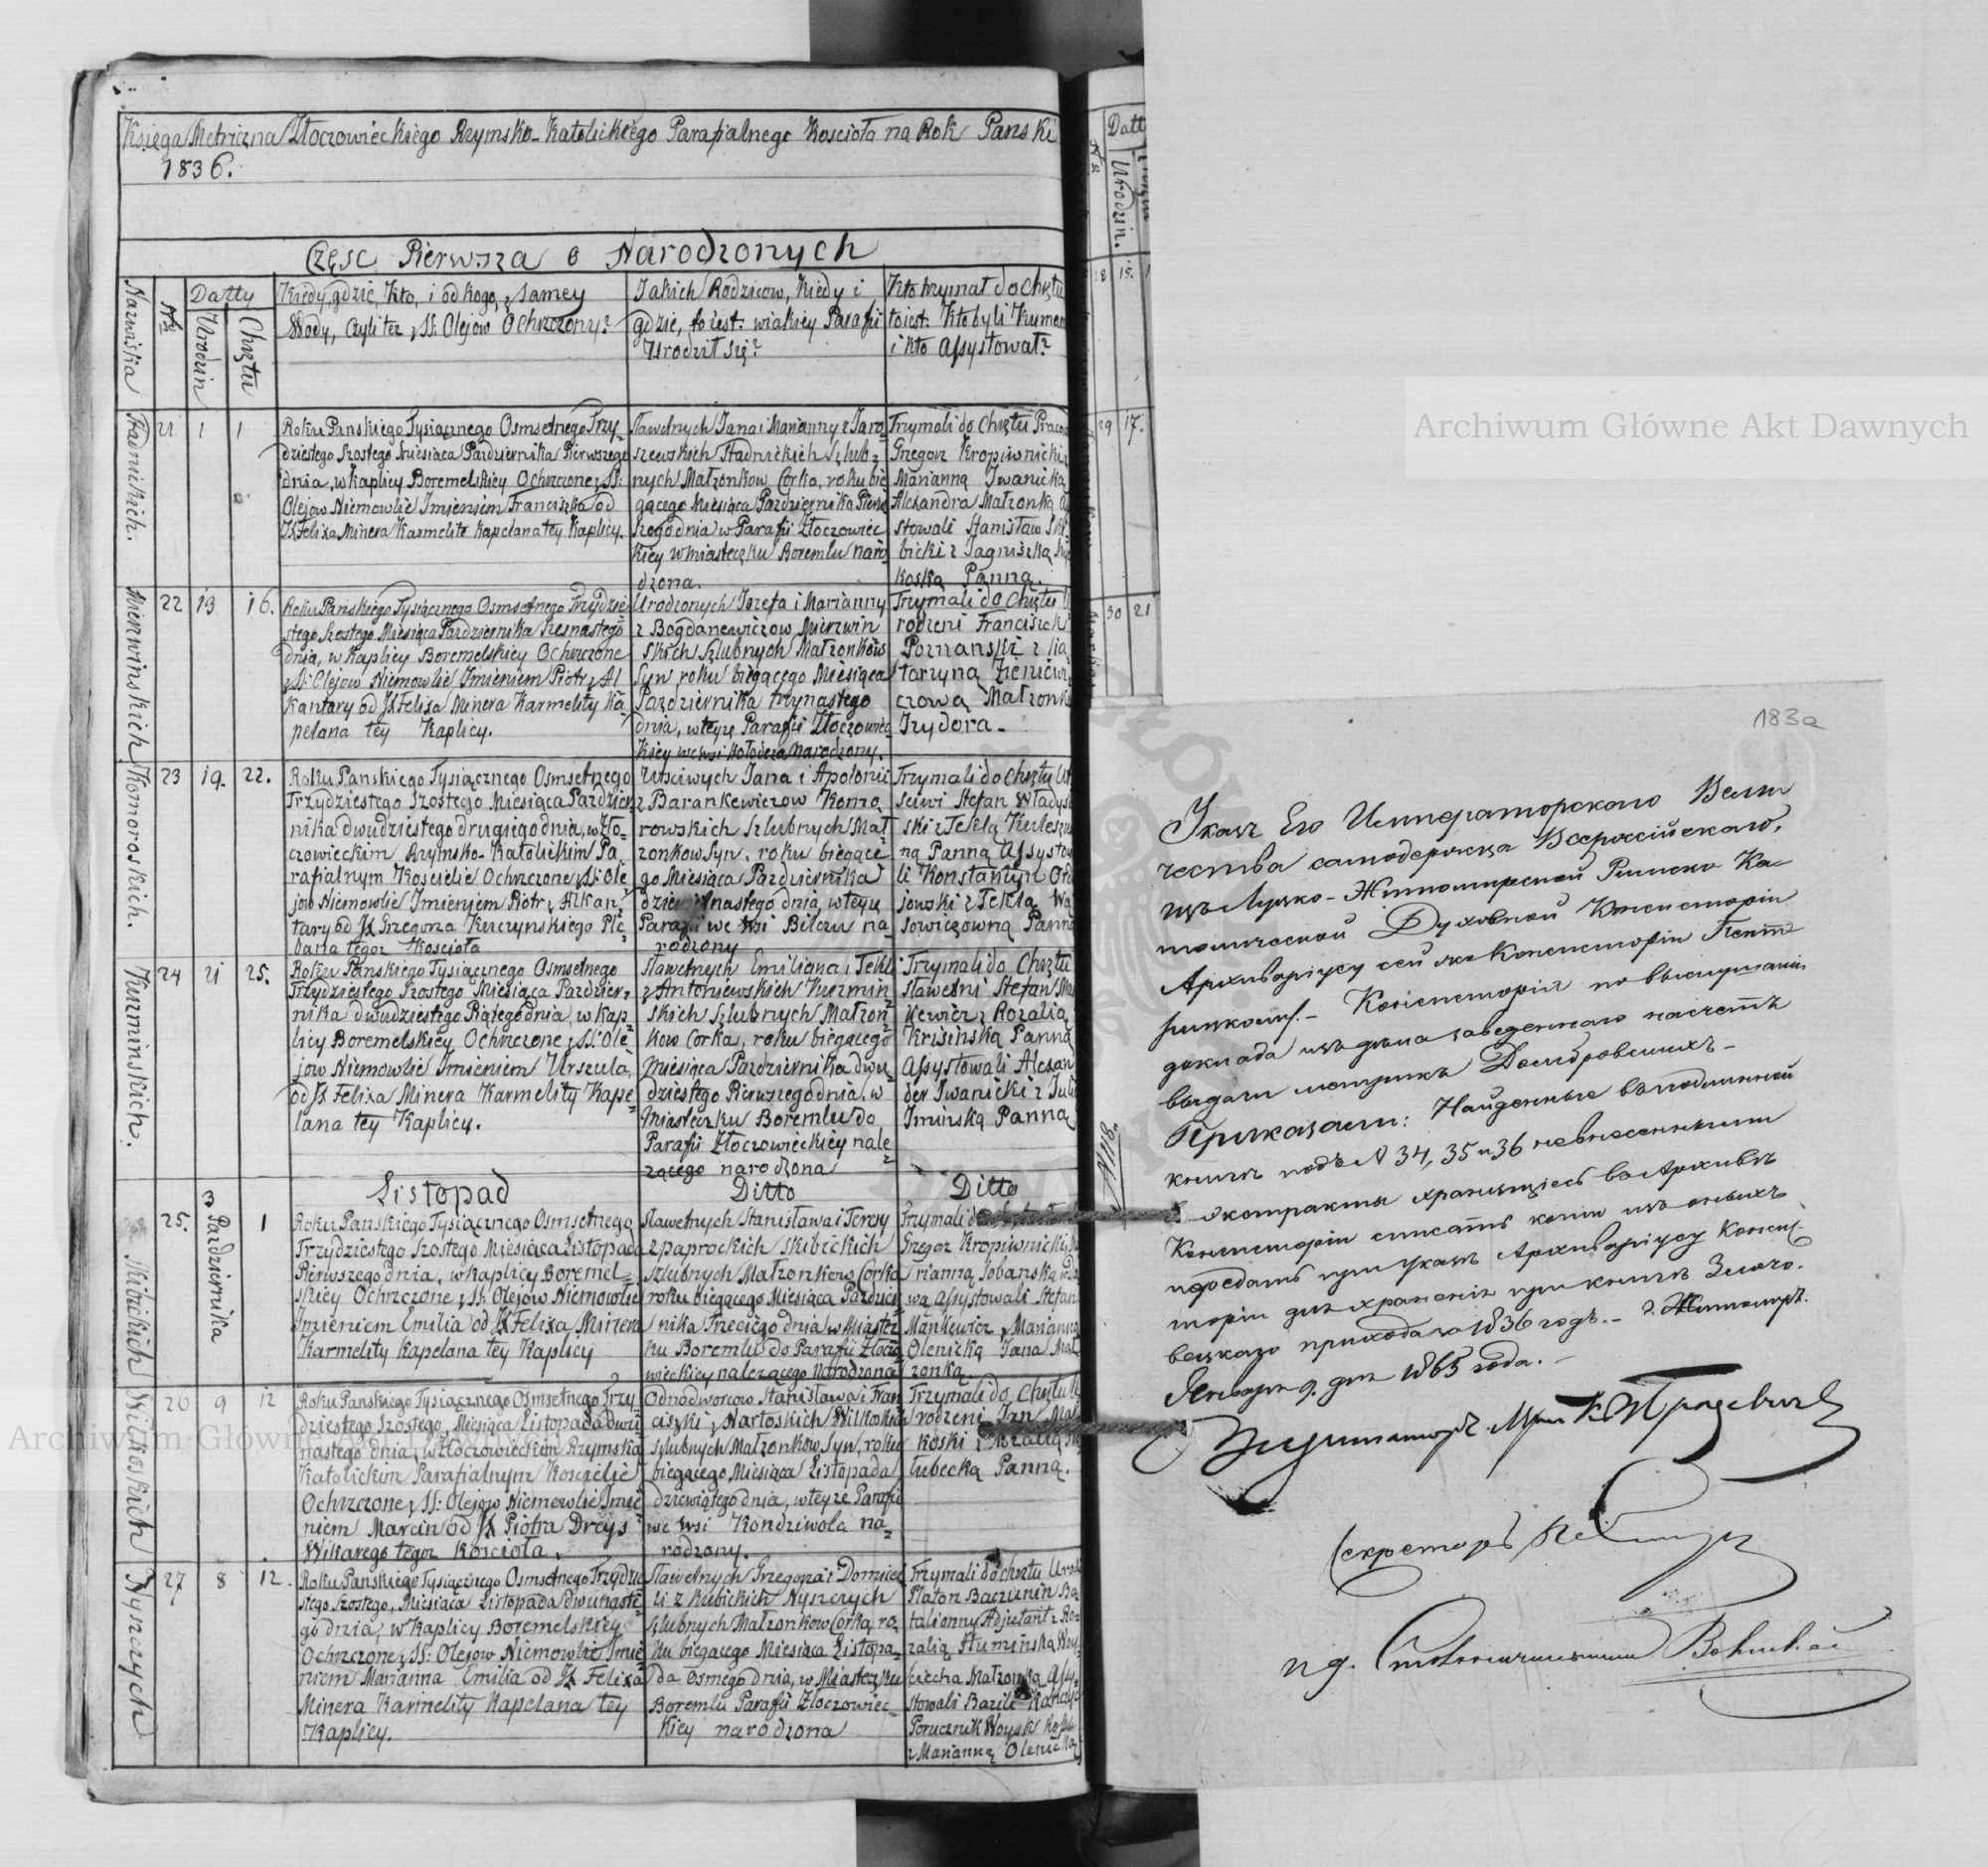 Księga Metriczna Złoczowieckiego Rzymsko-Katolickiego Parafialnego Koscioła na Rok Panski
1836.
Częsc Pierwsza o Narodzonych
Nazwiska
№
Datty
Urodzin
Chrztu
Kiedy, gdzie, Kto, i od kogo, z samey
Wody, czyli tez z SS: Olejow Ochrzczony?
Jakich Rodzicow, Kiedy i
gdzie, to iest. wiakiey Parafii
Urodził się?
Kto trzymał do Chrztu
toiest. Kto byli Kumem
i kto Assystował?
Stadnikich.
21 1 1
Roku Panskiego Tysiącznego Osmsetnego Trzy-
dziestego Szostego Miesiąca Pazdziernika Pierwszego
dnia, w kaplicy Boremelskiey Ochrzczone z SS:
Olejow Niemowlie Imieniem Franciszka od
JX Felixa Minera Karmelite Kapelana tey Kaplicy.
Sławetnych Jana i Marianny z Jaro-
szewskich Stadnickich Szlub-
nych Małzonkow Corka, roku bie
gącego Miesiąca Pazdziernika Pierw
szego dnia w Parafii Złoczowiec
kiey w Miasteczku Boremlu naro
dzona.
Trzymali do Chrztu
Grzegorz Kropiwnicki z
Marianną Iwanicką
Alexandra Małzonką
stowali Stanisław
bicki z Jagniszką
koską Panną.
Mierzwinskich
22 13 16.
Roku Panskiego Tysiącznego Osmsetnego Trzydzie
stego Szostego Miesiąca Pazdziernika Szesnastego
dnia, w Kaplicy Boremelskiey Ochrzczone
z SS: Olejow Niemowlie Imieniem Piotr z Al
kantary od JX Felixa Minera Karmelity Ka-
pelana tey Kaplicy.
Urodzonych Jozefa i Marianny
z Bogdanewiczow Mierzwin
skich Szlubnych Małzonkow
Syn, roku biegącego Miesiąca
Pazdziernika trzynastego
dnia, w teyze Parafii Złoczowiec
kiey we wsi Kołodeza Narodzony.
Trzymali do Chrztu U
rodzeni Franciszek
Poznanski z Ka
tarzyną
czową Małzonk
Izydora.
Komoroskich.
23 19. 22.
Roku Panskiego Tysiącznego Osmsetnego
Trzydziestego Szostego Miesiąca Pazdzier
nika dwudziestego drugiego dnia, w Zło-
czowieckim Rzymsko-Katolickim Pa
rafialnym Kosciele Ochrzczone z SS: Ole
jow Niemowlie Imieniem Piotr z Alkan-
tary od JX Grzegorza Kurczynskiego Ple
bana tegoz Koscioła
Ucsciwych Jana i Apolonii
z Barankewiczow Komo
rowskich Szlubnych Mał
zonkow Syn. roku biegące
go Miesiąca Pazdziernika
dziewiętnastego dnia, w teyze
Parafii we wsi Bilczu na-
rodzony
Trzymali do Chrztu Uc
sciwi Stefan Władys
ski z Teklą Kulesz
ną Panną Assystowa
li Konstantyn
jowski z Teklą Wą
sowiczowną Panną
Kuzminskich.
24 21 25.
Roku Panskiego Tysiącznego Osmsetnego
Trzydziestego Szostego Miesiąca Pazdzier-
nika dwudziestego Piątego dnia, w Kap-
licy Boremelskiey Ochrzczone z SS: Ole
jow Niemowlie Imieniem Urszula,
od JX Felixa Minera Karmelity Kape
lana tey Kaplicy.
Sławetnych Emiliana i Tekli
z Antoniewskich Kuzmin
skich Szlubnych Małzon
kow Corka, roku biegącego
Miesiąca Pazdziernika dwu
dziestego Pierwszego dnia, w
Miasteczku Boremlu do
Parafii Złoczowieckiey nale
zącego narodzona
Trzymali do Chrztu
Sławetni Stefan
kewicz z Rozalią
Krisinską Panną
Assystowali Alexan
der Iwanicki z Juli
Iminską Panną
Listopad
Ditto
Ditto
Skibickich
25. 3 Pazdziernika 1
Roku Panskiego Tysiącznego Osmsetnego
Trzydziestego Szostego Miesiąca Listopada
Pierwszego dnia, w kaplicy Boremel-
skiey Ochrzczone z SS: Olejow Niemowlie
Imieniem Emilia od JX Felixa Minera
Karmelity Kapelana tey Kaplicy
Sławetnych Stanisława i Teresy
z paprockich Skibickich
Szlubnych Małzonkow Corka
roku biegącego Miesiąca Pazdzier
nika Trzeciego dnia w Miastecz
ku Boremlu do Parafii Złoczo
wieckiey nalezącego Narodzona
Trzymali do
Grzegorz Kropiwnicki
rianną Sobanską
wą Assystowali Stefan
Mankewicz z Marianną
Olenicką Jana Mał
zonką
Wilkoskich
26 9 12
Roku Panskiego Tysiącznego Osmsetnego Trzy
dziestego Szostego, Miesiąca Listopada dwu
nastego dnia, w Złoczowieckim Rzymsko
Katolickim Parafialnym Kosciele
Ochrzczone z SS: Olejow Niemowlie Imie
niem Marcin od JX Piotra Dreys
Wikarego tegoz Koscioła.
Odnodworcow Stanisława i Fran
ciszki z Nartoskich Wilkoskich
Szlubnych Małzonkow Syn, roku
biegącego, Miesiąca Listopada
dziewiątego dnia, w teyze Parafii
we wsi Kondziwola na-
rodzony.
Trzymali do Chrztu U
rodzeni Jan
koski z Rozalią
łubecką Panną.
Nyszczych
27 8 12.
Roku Panskiego Tysiącznego Osmsetnego Trzydzie
stego Szostego, Miesiąca Listopada dwunaste
go dnia, w Kaplicy Boremelskiey
Ochrzczone z SS: Olejow Niemowlie Imie
niem Marianna Emilia od JX Felixa
Minera Karmelity Kapelana tey
Kaplicy.
Sławetnych Grzegorza i Domicel
li z Kubickich Nyszczych
Szlubnych Małzonkow Corka, ro
ku biegącego Miesiąca Listopa-
da Osmego dnia, w Miasteczku
Boremlu Parafii Złoczowiec-
kiey narodzona
Trzymali do chrztu Urod
Platon Baczunin Ba
talionny Adjutant z Ro
zalią Stuminską Woy
ciecha Małzonką Assy
stowali Bazili
Porucznik Woysk
z Marianną Olenicką
№
Datt
Urodzin.
28 15. 1
29 17.
30 21
183a
№ 118.
Указъ Его Императорскаго Вели
чества самодержца Всероссійскаго,
изъ Луцко-Житомирской Римско Ка-
толической Духовной Консисторіи
Архиваріусу сей же Консисторіи
Консисторія по выслушаніи
доклада изъ дѣла заведеннаго насчетъ
выдачи метрикъ Домбровскихъ
Приказали: Найденные въ подлинной
книгѣ подъ № 34, 35 и 36 невнесенными
экстракты хранящіеся въ Архивѣ
Консисторіи списать копіи изъ оныхъ
передать при указѣ Архиваріусу Конси
сторіи для храненія при книгѣ Злочо-
вецкаго прихода за 1836 годъ. г. Житомиръ.
Января 9. дня 1865 года.
Секретарь
Bohusz
Archiwum Główne Akt Dawnych
Archiwum Główne